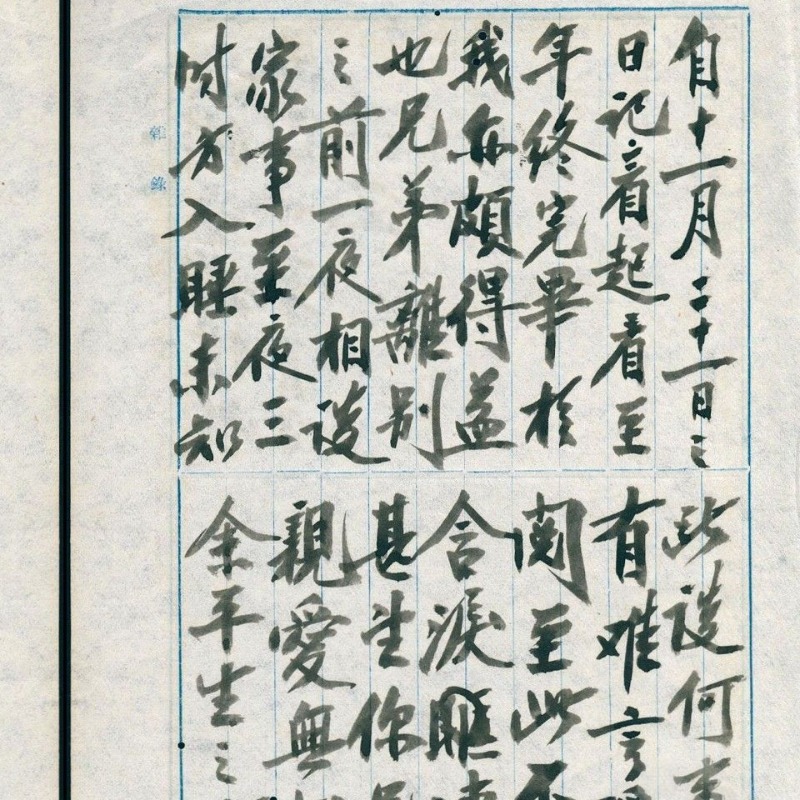 自十一月二十一日之
日記看起看至
年終完畢於
我亦頗得益
也兄弟離別
之前一夜相談
家事至夜三
時方入睡未知
此談何
有难言
阅至此不
含淚
甚生你
親愛無
余平生之
雜錄